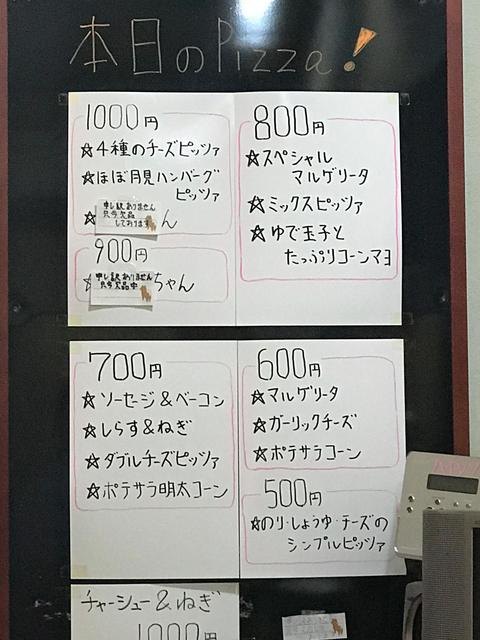 本日のPizza!
1000円
☆4種のチーズピッツァ
☆ほぼ月見ハンバーグ
ピッツァ
☆
申し訳ありません
只今欠品
しております
ん
900円
☆
申し訳ありません
只今欠品中
ちゃん
800円
☆スペシャル
マルゲリータ
☆ミックスピッツァ
☆ゆで玉子と
たっぷりコーンマヨ
700円
☆ソーセージ&ベーコン
☆しらす&ねぎ
☆ダブルチーズピッツァ
☆ポテサラ明太コーン
600円
☆マルゲリータ
☆ガーリックチーズ
☆ポテサラコーン
500円
☆のり・しょうゆ・チーズの
シンプルピッツァ
チャーシュー&ねぎ
1000円